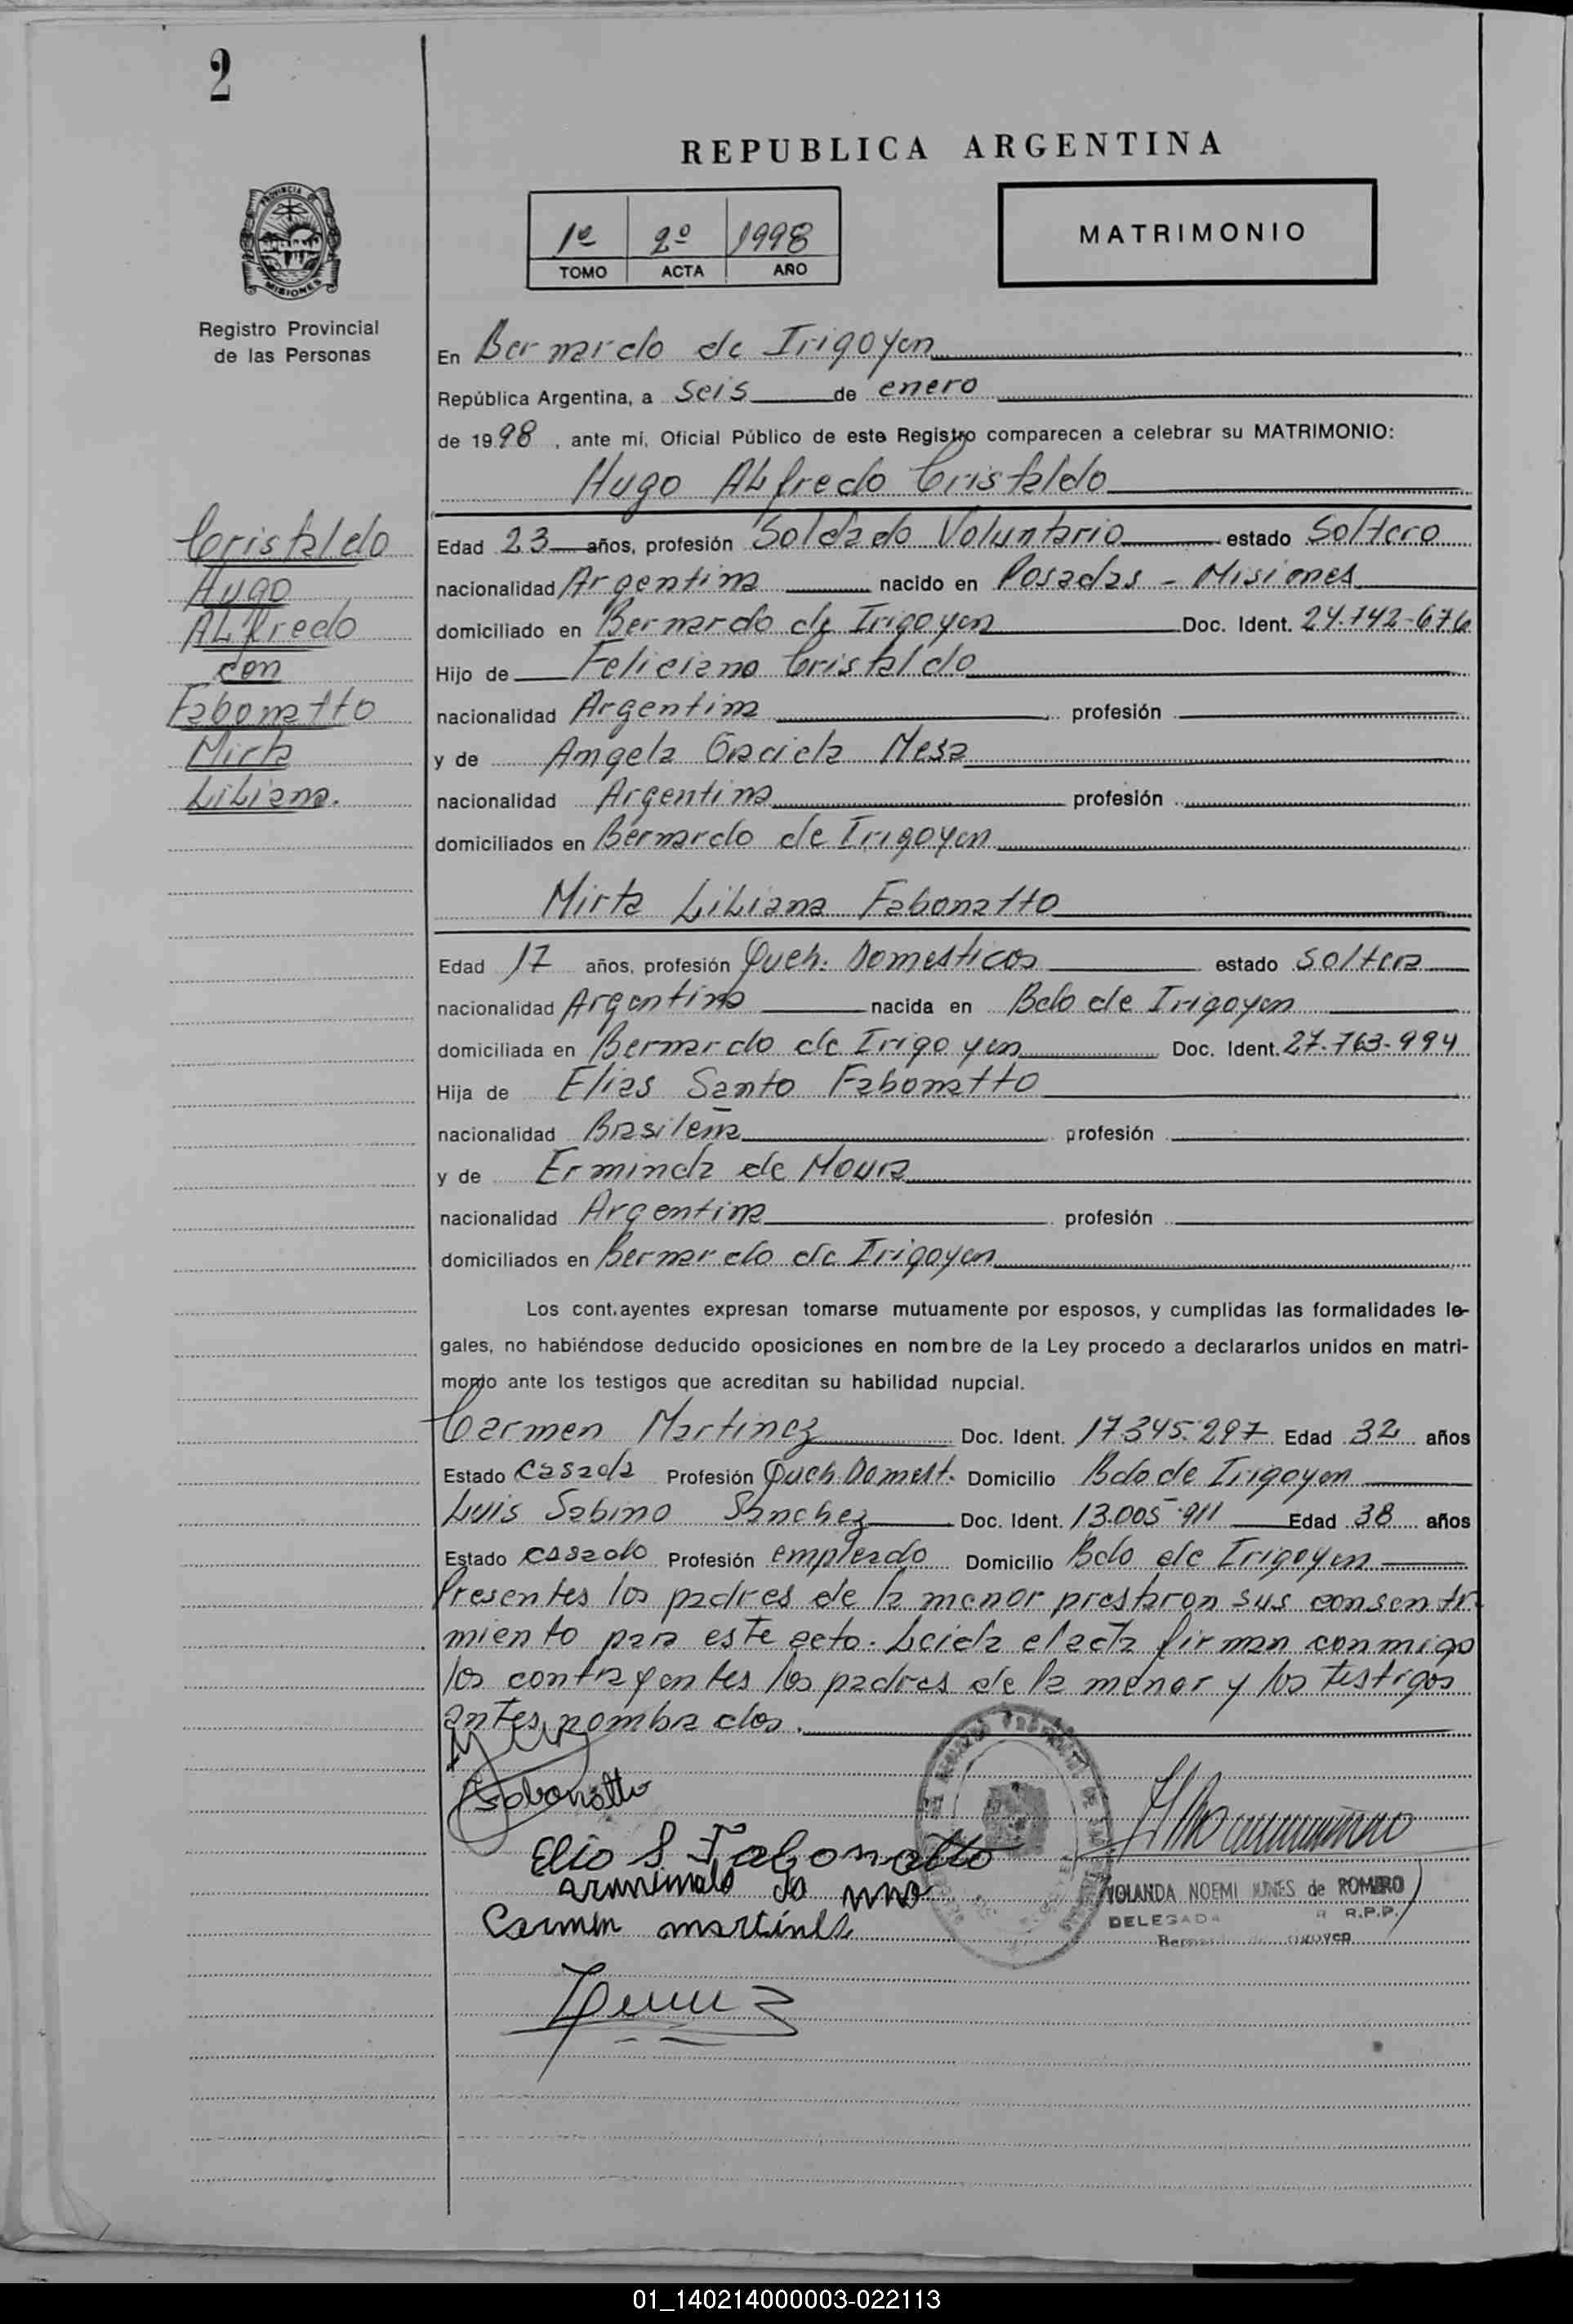 2
REPUBLICA ARGENTINA
1º 2º 1998
TOMO ACTA AÑO
MATRIMONIO
PROVINCIA DE
MISIONES
Registro Provincial
de las Personas
En Bernardo de Irigoyen
República Argentina, a seis de enero
de 1998, ante mí, Oficial Público de este Registro comparecen a celebrar su MATRIMONIO:
Hugo ALfredo Cristaldo
Cristaldo
Hugo
ALfredo
con
Fabonatto
Mirta
LiLiana.
Edad 23 años, profesión Soldado Voluntario estado Soltero
nacionalidad Argentina nacido en Posadas - Misiones
domiciliado en Bernardo de Irigoyen Doc. Ident. 24.142-676
Hijo de Feliciano Cristaldo
nacionalidad Argentina profesión
y de Angela Graciela Mesa
nacionalidad Argentina profesión
domiciliados en Bernardo de Irigoyen
Mirta LiLiana Fabonatto
Edad 17 años, profesión Queh. Domesticos estado soltera
nacionalidad Argentina nacida en Bdo de Irigoyen
domiciliada en Bernardo de Irigoyen Doc. Ident. 27.763-994
Hija de Elias Santo Fabonatto
nacionalidad Brasileña profesión
y de Erminda de Moura
nacionalidad Argentina profesión
domiciliados en Bernardo de Irigoyen
Los cont.ayentes expresan tomarse mutuamente por esposos, y cumplidas las formalidades le-
gales, no habiéndose deducido oposiciones en nombre de la Ley procedo a declararlos unidos en matri-
monio ante los testigos que acreditan su habilidad nupcial.
Carmen Martinez Doc. Ident. 17.345.297 Edad 32 años
Estado casada Profesión Queh. Domest. Domicilio Bdo de Irigoyen
Luis Sabino Sanchez Doc. Ident. 13.005.911 Edad 38 años
Estado casado Profesión empleado Domicilio Bdo de Irigoyen
Presentes los padres de la menor prestaron sus consenti
miento para este acto. Leida el acta firman conmigo
los contrayentes los padres de la menor y los testigos
antes nombrados.
Fabonatto
Elio S Fabonatto
Carmen martines
YOLANDA NOEMI NUNES de ROMERO
DELEGADA R.P.P.
01_140214000003-022113